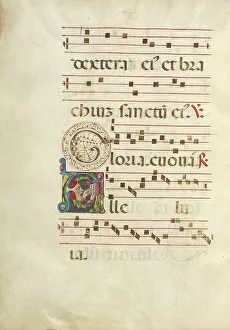 dextera ei⁹ et bra
chiuz sanctū ei⁹. V.
Gloria. euoua. R
Alle lu
ia.